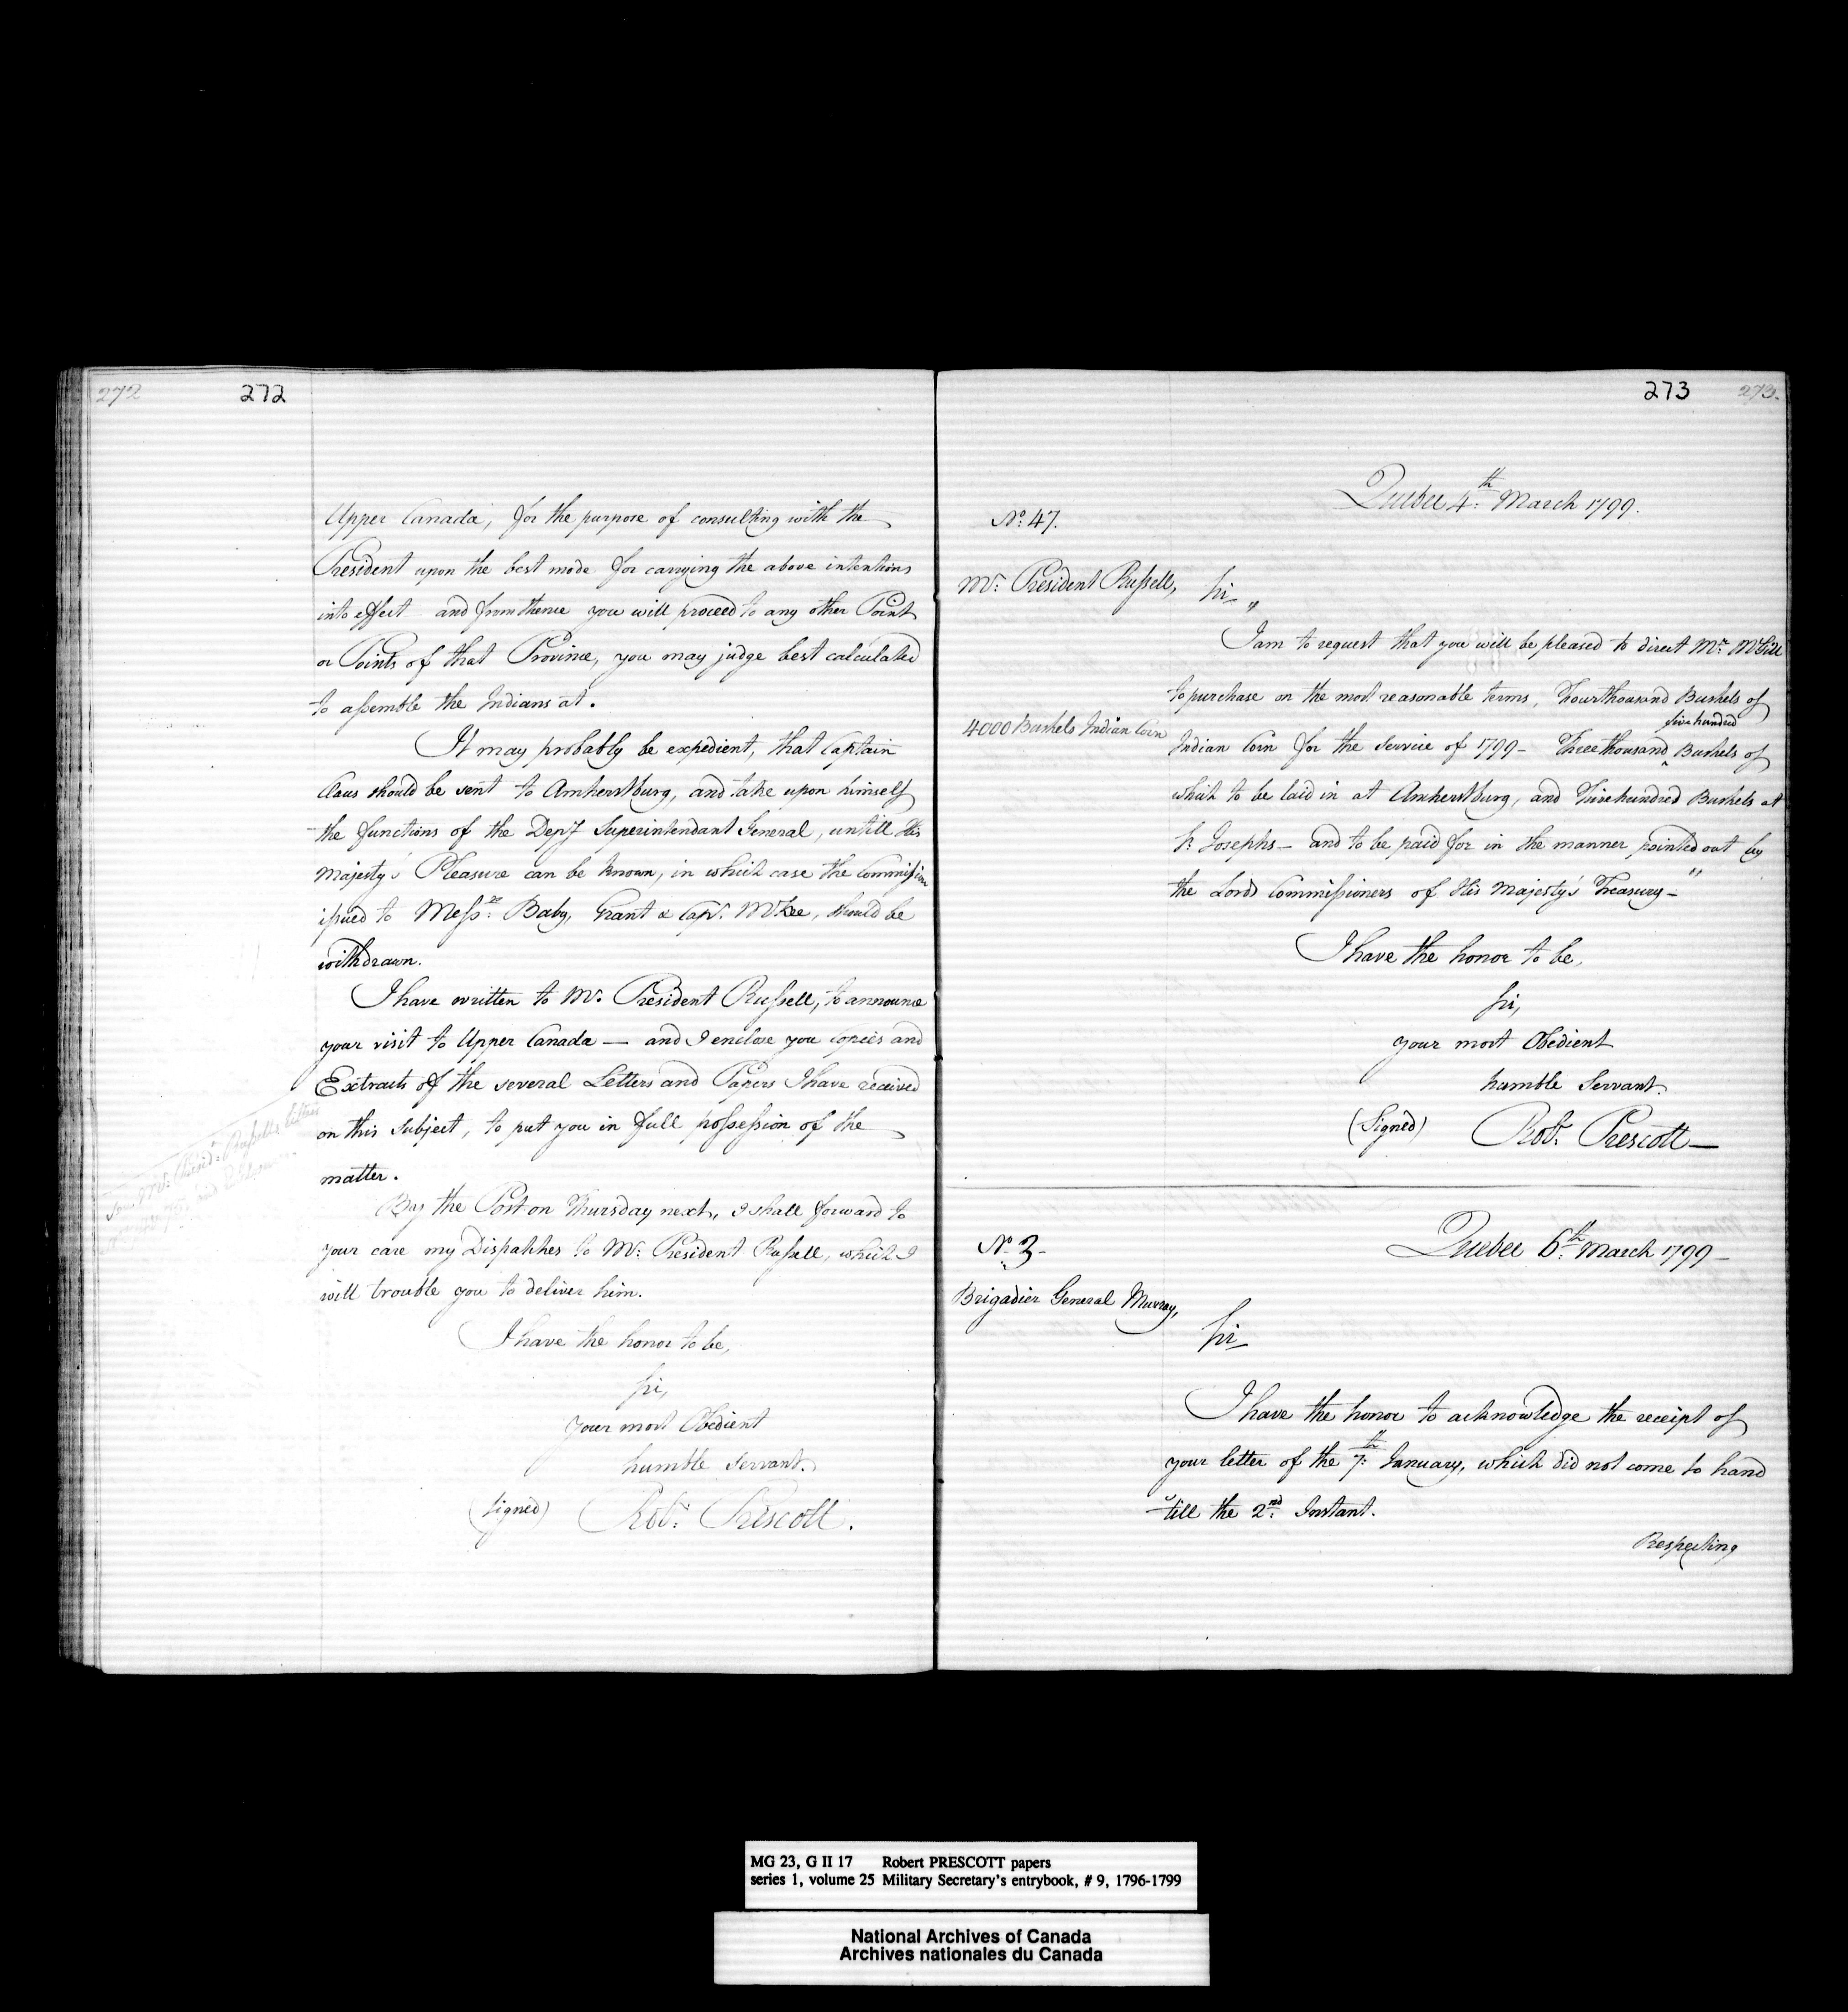 272
272
Upper Canada, for the purpose of consulting with the
President upon the best mode for carrying the above intentions
into effect and from thence you will proceed to any other Point
or Points of that Province, you may judge best calculated
to assemble the Indians at.
It may probably be expedient, that Captain
Claus should be sent to Amherstburg, and take upon himself
the functions of the Depy Superintendant General, untill His
Majesty's Pleasure can be known, in which case the Commission
issued to Messrs. Baby, Grant & Capt. McKee, should be
withdrawn.
I have written to Mr. President Russell, to announce
your visit to Upper Canada — and I enclose you copies and
Extracts of the several Letters and Papers I have received
on this subject, to put you in full possession of the
matter.
See Mr. Presidt. Russell's letters
and Enclosures
By the Post on Thursday next, I shall forward to
your care my Dispatches to Mr. President Russell, which I
will trouble you to deliver him.
I have the honor to be,
Sir,
your most Obedient
humble Servant.
(Signed) Robt. Prescott.
273
273.
Quebec 4th. March 1799.
No. 47.
Mr. President Russell,
Sir "
I am to request that you will be pleased to direct Mr. McGill
to purchase on the most reasonable terms, Four thousand Bushels of
4000 Bushels Indian Corn
five hundred
Indian Corn for the Service of 1799 — Three thousand ^ Bushels of
which to be laid in at Amherstburg, and Five hundred Bushels at
St. Josephs — and to be paid for in the manner pointed out by
the Lords Commissioners of His Majesty's Treasury — "
I have the honor to be,
Sir,
your most Obedient
humble Servant.
(Signed) Robt. Prescott —
No. 3 —
Quebec 6th. March 1799 —
Brigadier General Murray,
Sir
I have the honor to acknowledge the receipt of
your letter of the 7th. January, which did not come to hand
till the 2nd. Instant.
Respecting
MG 23, G II 17 Robert PRESCOTT papers
series 1, volume 25 Military Secretary's entrybook, # 9, 1796-1799
National Archives of Canada
Archives nationales du Canada